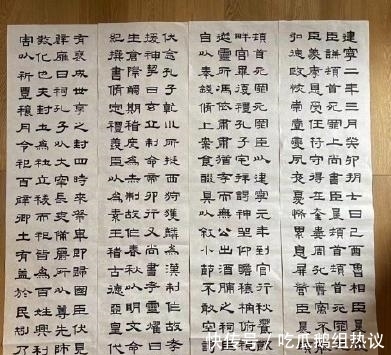 建寧二年三月癸卯朔七日己酉魯相臣
晨長史臣謙頓首死罪上尚書臣晨頓首頓首死罪死罪
臣蒙厚恩受任符守得在奎婁周孔舊寓不能闡
弘德政恢崇壹變夙夜憂怖累息屏營臣晨頓首
頓首死罪死罪臣以建寧元年到官行秋饗飲酒
畔宮畢復禮孔子宅拜謁神坐仰瞻榱桷俯視几
筵靈所馮依肅肅猶存而無公出酒脯之祠臣即
自以奉錢修上案食醊具以叙小節不敢空謁臣
伏念孔子乾坤所挺西狩獲麟為漢制作故孝經
援神挈曰玄丘制命帝卯行又尚書考靈耀曰丘
生倉際觸期稽度為赤制故作春秋以明文命綴
紀撰書修定禮義臣以為素王稽古德亞皇代雖
有褒成世享之封四時來祭畢即歸國臣伏見臨
辟雍日祠孔子以大牢長吏備爵所以尊先師重
教化也夫封土為社立稷而祀皆為百姓興利除
害以祈豐穰月令祀百辟卿士有益於民矧乃
快传号 / 吃瓜鹅组热议